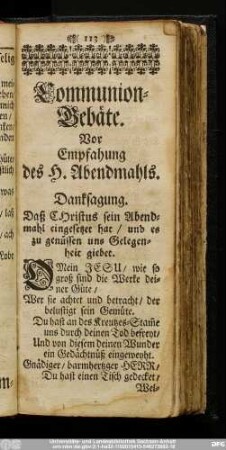 113
Communion-
Gebäte.
Vor
Empfahung
des H. Abendmahls.
Danksagung.
Daß CHristus sein Abend-
mahl eingesetzet hat / und es
zu genüssen uns Gelegen-
heit giebet.
O Mein JESU / wie so
groß sind die Werke dei-
ner Güte /
Wer sie achtet und betracht / der
belustigt sein Gemüte.
Du hast an des Kreutzes-Stam̃e
uns durch deinen Tod befreyt /
Und von diesem deinen Wunder
ein Gedächtnüß eingeweyht.
Gnädiger / barmhertziger HERR /
Du hast einen Tisch gedecket /
Wel-